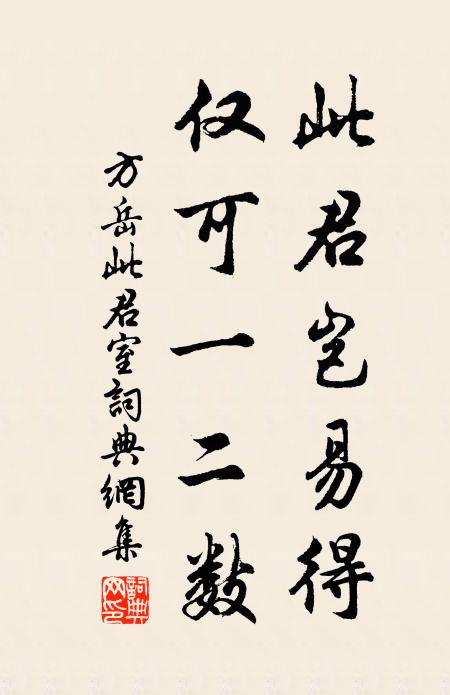 此君岂易得
仅可一二数
方岳此君室詞典網集
詞典網印